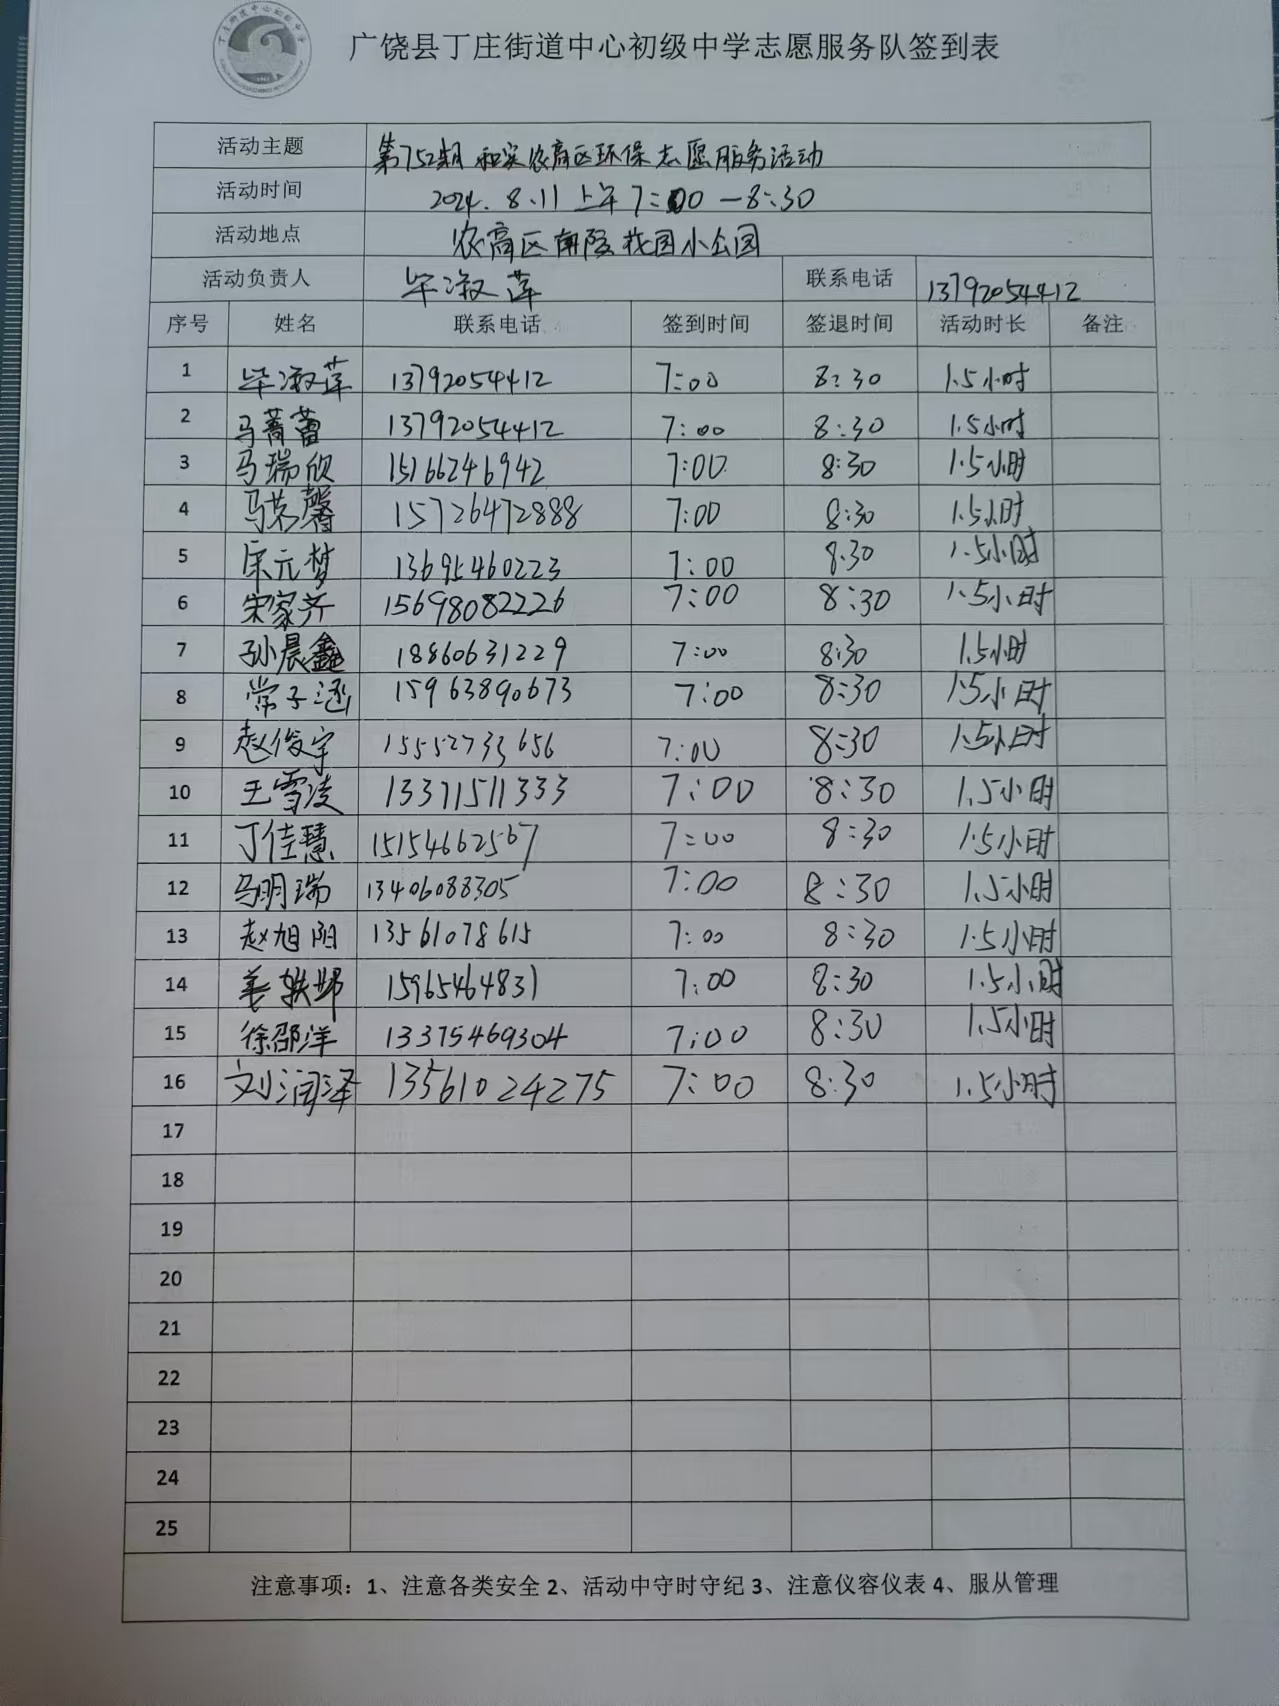 丁庄街道中心初级中学
广饶县丁庄街道中心初级中学志愿服务队签到表
活动主题 第752期 和实农高区环保志愿服务活动
活动时间 2024.8.11上午7:00—8:30
活动地点 农高区南陵花园小公园
活动负责人 毕淑莲 联系电话 13792054412
序号 姓名 联系电话 签到时间 签退时间 活动时长 备注
1 毕淑莲 13792054412 7:00 8:30 1.5小时
2 马菁蕾 13792054412 7:00 8:30 1.5小时
3 马瑞欣 15166246942 7:00 8:30 1.5小时
4 马茗馨 15726472888 7:00 8:30 1.5小时
5 宋元梦 13695460223 7:00 8:30 1.5小时
6 宋家齐 15698082226 7:00 8:30 1.5小时
7 孙晨鑫 18860631229 7:00 8:30 1.5小时
8 常子涵 15963890673 7:00 8:30 1.5小时
9 赵俊宇 15552733656 7:00 8:30 1.5小时
10 王雪凌 13371511333 7:00 8:30 1.5小时
11 丁佳慧 15154662567 7:00 8:30 1.5小时
12 马明瑞 13406088305 7:00 8:30 1.5小时
13 赵旭阳 13561078615 7:00 8:30 1.5小时
14 姜 15965464831 7:00 8:30 1.5小时
15 徐邵洋 13375469304 7:00 8:30 1.5小时
16 刘润泽 13561024275 7:00 8:30 1.5小时
17
18
19
20
21
22
23
24
25
注意事项：1、注意各类安全 2、活动中守时守纪 3、注意仪容仪表 4、服从管理